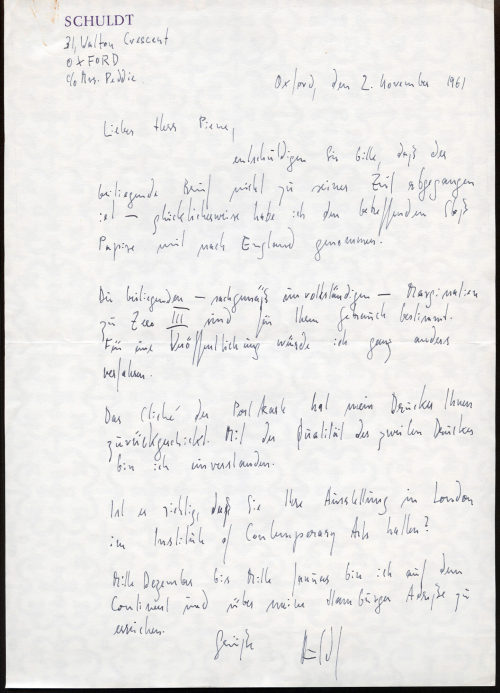 SCHULDT
31, Walton Crescent
OXFORD
c/o Mrs. Peddie
Oxford, den 2. November 1961
Lieber Herr Piene,
entschuldigen Sie bitte, daß der
beiliegende Brief nicht zu seiner Zeit abgegangen
ist – glücklicherweise habe ich den betreffenden Stoß
Papire mit nach England genommen.
Die beiliegenden – sachgemäß unvollständigen – Marginalien
zu Zero III sind für Ihren Gebrauch bestimmt.
Für eine Veröffentlichung würde ich ganz anders
verfahren.
Das Cliché der Postkarte hat mein Drucker Ihnen
zurückgeschickt. Mit der Qualität des zweiten Druckes
bin ich einverstanden.
Ist es richtig, daß Sie Ihre Ausstellung in London
im Institute of Contemporary Arts halten?
Mitte Dezember bis Mitte Januar bin ich auf dem
Continent und über meine Hamburger Adresse zu
erreichen.
Grüße